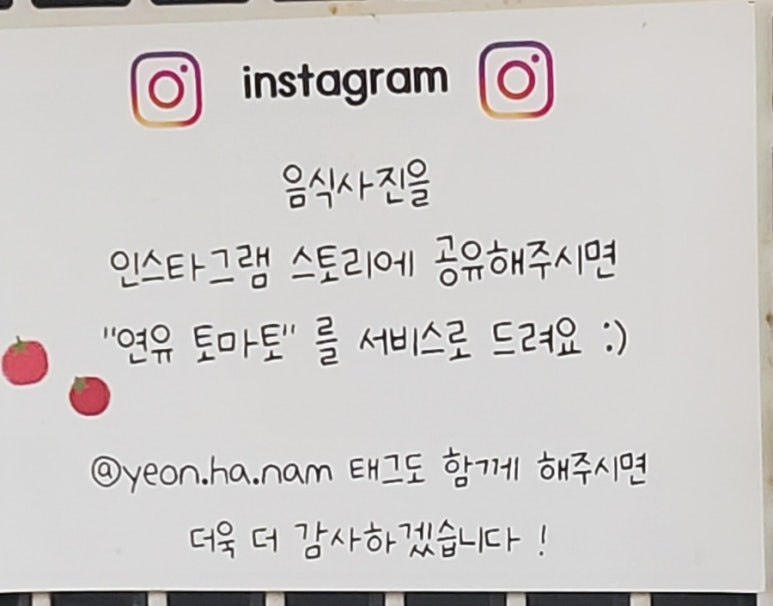 instagram
음식사진을
인스타그램 스토리에 공유해주시면
"연유 토마토" 를 서비스로 드려요 :)
@yeon.ha.nam 태그도 함께 해주시면
더욱 더 감사하겠습니다 !